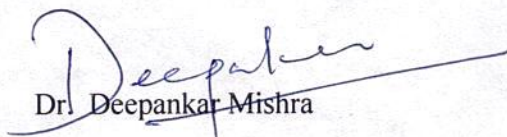 Deepankar
Dr. Deepankar Mishra